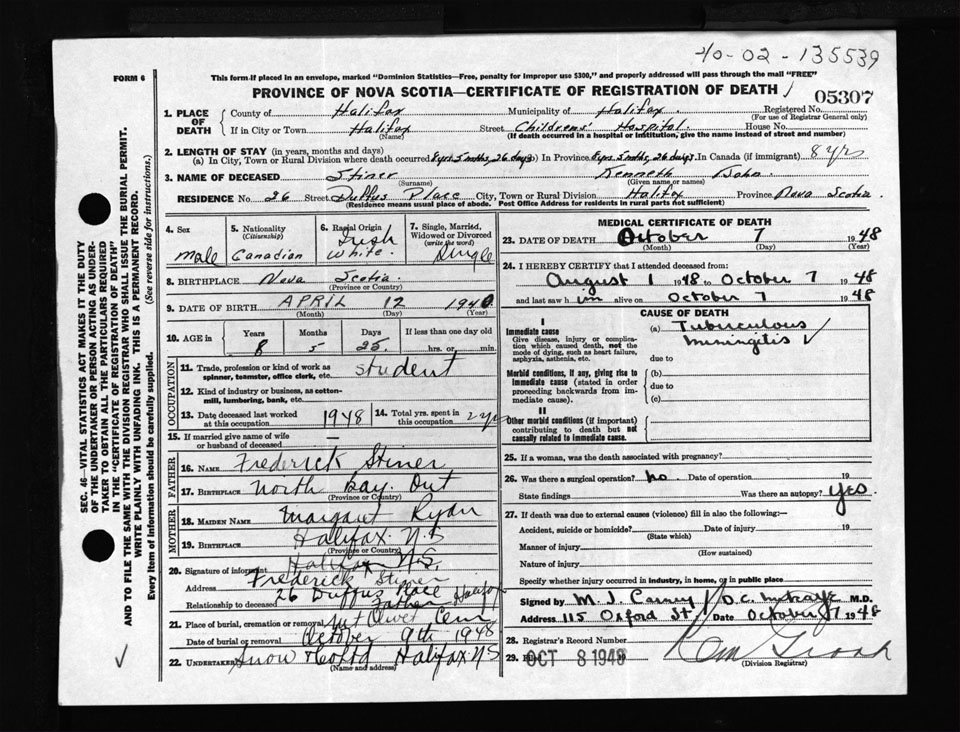 40-02-135539
FORM 6
This form if placed in an envelope, marked "Dominion Statistics—Free, penalty for improper use $300," and properly addressed will pass through the mail "FREE"
PROVINCE OF NOVA SCOTIA—CERTIFICATE OF REGISTRATION OF DEATH
05307
1. PLACE OF DEATH { County of Halifax Municipality of Halifax Registered No.
(For use of Registrar General only)
If in City or Town Halifax Street Childrens' Hospital House No.
(Name) (If death occurred in a hospital or institution, give the name instead of street and number)
2. LENGTH OF STAY (in years, months and days)
(a) In City, Town or Rural Division where death occurred 8yrs 5mths, 26 days) In Province 8yrs 5mths, 26 days In Canada (if immigrant) 8 yrs
3. NAME OF DECEASED Stiner Kenneth John
(Surname) (Given name or names)
RESIDENCE No. 26 Street Duffus Place City, Town or Rural Division Halifax Province Nova Scotia
(Residence means usual place of abode. Post Office Address for residents in rural parts not sufficient)
SEC. 46—VITAL STATISTICS ACT MAKES IT THE DUTY
OF THE UNDERTAKER OR PERSON ACTING AS UNDER-
TAKER TO OBTAIN ALL THE PARTICULARS REQUIRED
IN THE "CERTIFICATE OF REGISTRATION OF DEATH"
AND TO FILE THE SAME WITH THE DIVISION REGISTRAR WHO SHALL ISSUE THE BURIAL PERMIT.
WRITE PLAINLY WITH UNFADING INK. THIS IS A PERMANENT RECORD.
Every item of information should be carefully supplied. (See reverse side for instructions.)
4. Sex
Male
5. Nationality
(Citizenship)
Canadian
6. Racial Origin
Irish
White
7. Single, Married,
Widowed or Divorced
(write the word)
Single
8. BIRTHPLACE Nova Scotia
(Province or Country)
9. DATE OF BIRTH APRIL 12 1940
(Month) (Day) (Year)
10. AGE in { Years Months Days If less than one day old
8 5 25 hrs. or min.
OCCUPATION
11. Trade, profession or kind of work as student
spinner, teamster, office clerk, etc.
12. Kind of industry or business, as cotton-
mill, lumbering, bank, etc.
13. Date deceased last worked
at this occupation 1948
14. Total yrs. spent in
this occupation 2 yrs
15. If married give name of wife
or husband of deceased —
FATHER
16. NAME Frederick Stiner
17. BIRTHPLACE North Bay. Ont
(Province or Country)
MOTHER
18. MAIDEN NAME Margaret Ryan
19. BIRTHPLACE Halifax. N.S
(Province or Country)
Halifax N.S.
20. Signature of informant Frederick Stiner
Address 26 Duffus Place Halifax
Relationship to deceased Father
21. Place of burial, cremation or removal Mt Olivet Cem
Date of burial or removal October 9th 1948
22. UNDERTAKER Snow Halifax NS
(Name and address)
MEDICAL CERTIFICATE OF DEATH
23. DATE OF DEATH October 7 1948
(Month) (Day) (Year)
24. I HEREBY CERTIFY that I attended deceased from:
August 1 1948 to October 7 1948
and last saw him alive on October 7 1948
CAUSE OF DEATH
I
Immediate cause
Give disease, injury or complica-
tion which caused death, not the
mode of dying, such as heart failure,
asphyxia, asthenia, etc.
(a) Tuberculous
meningitis
due to
Morbid conditions, if any, giving rise to
immediate cause (stated in order
proceeding backwards from im-
mediate cause).
(b)
due to
(c)
II
Other morbid conditions (if important)
contributing to death but not
causally related to immediate cause.
25. If a woman, was the death associated with pregnancy?
26. Was there a surgical operation? No. Date of operation 19
State findings Was there an autopsy? Yes
27. If death was due to external causes (violence) fill in also the following:—
Accident, suicide or homicide? Date of injury 19
(State which)
Manner of injury
(How sustained)
Nature of injury
Specify whether injury occurred in industry, in home, or in public place
Signed by M. J. Carney / D.C. M.D.
Address 115 Oxford St Date October 7 1948
28. Registrar's Record Number
29. OCT 8 1948
(Division Registrar)